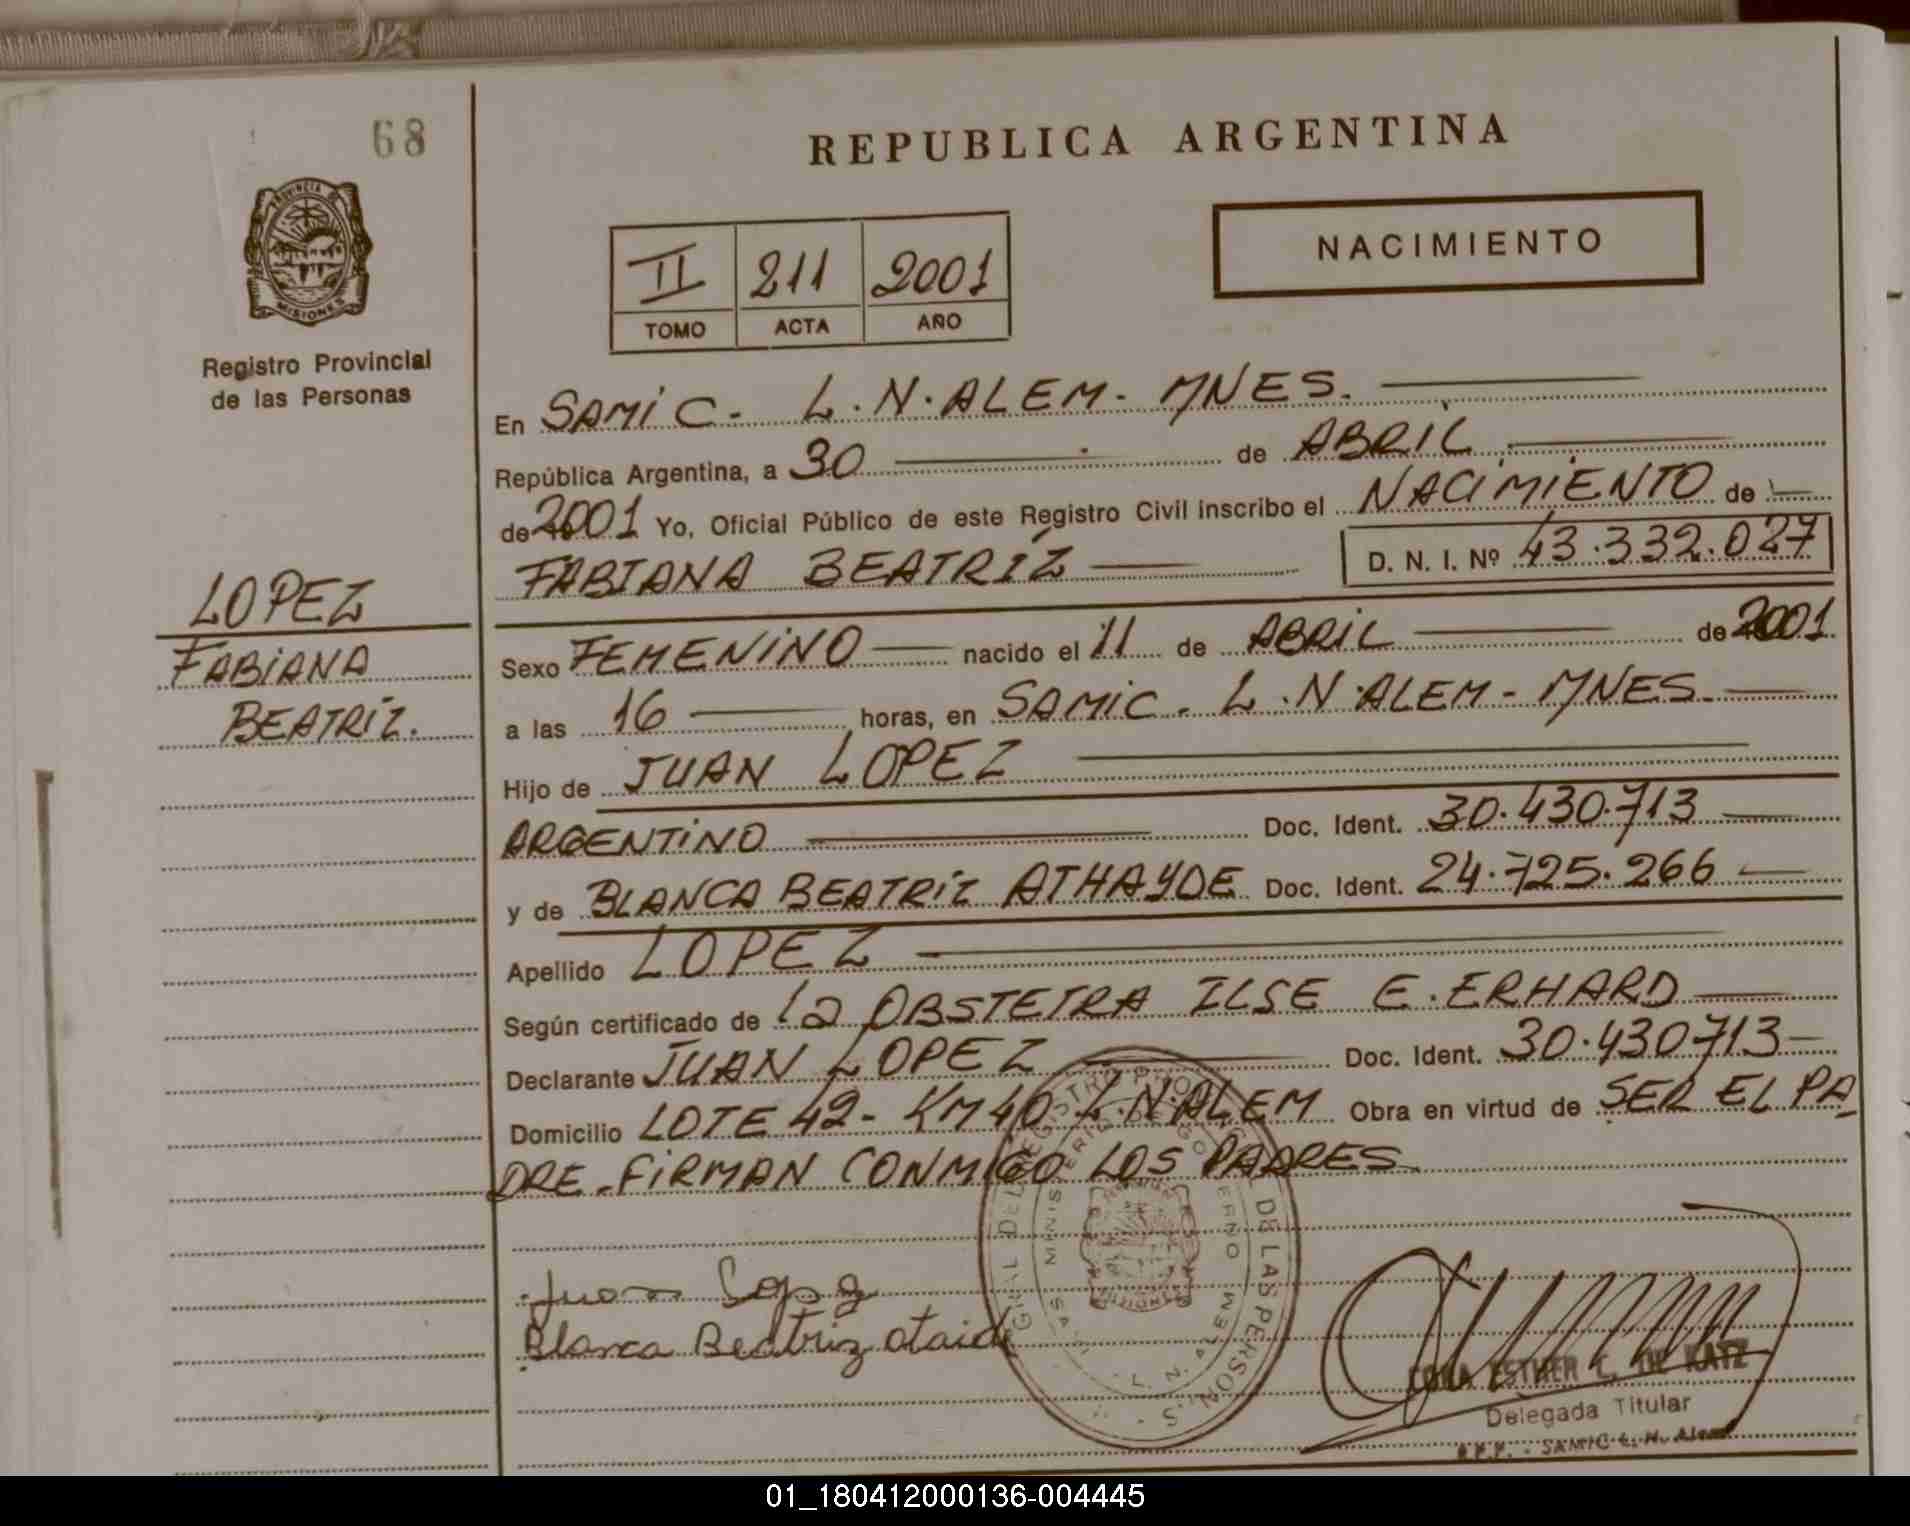 68
REPUBLICA ARGENTINA
PROVINCIA DE
MISIONES
Registro Provincial
de las Personas
II 211 2001
TOMO ACTA AÑO
NACIMIENTO
LOPEZ
FABIANA
BEATRIZ.
En SAMIC - L.N.ALEM - MNES.
República Argentina, a 30 de ABRIL
de 2001 Yo, Oficial Público de este Registro Civil inscribo el NACIMIENTO de
FABIANA BEATRIZ D. N. I. Nº 43.332.027
Sexo FEMENINO nacido el 11 de ABRIL de 2001
a las 16 horas, en SAMIC - L.N.ALEM - MNES.
Hijo de JUAN LOPEZ
ARGENTINO Doc. Ident. 30.430.713
y de BLANCA BEATRIZ ATHAYDE Doc. Ident. 24.725.266
Apellido LOPEZ
Según certificado de la OBSTETRA ILSE E. ERHARD
Declarante JUAN LOPEZ Doc. Ident. 30.430713
Domicilio LOTE 42 - KM 40 L.N.ALEM Obra en virtud de SER EL PA
DRE - FIRMAN CONMIGO LOS PADRES
Juan Lopez
Blanca Beatriz ataide
ESTHER C. DE KATZ
Delegada Titular
SAMIC L. N. Alem
L. N. ALEM
MISIONES
01_180412000136-004445